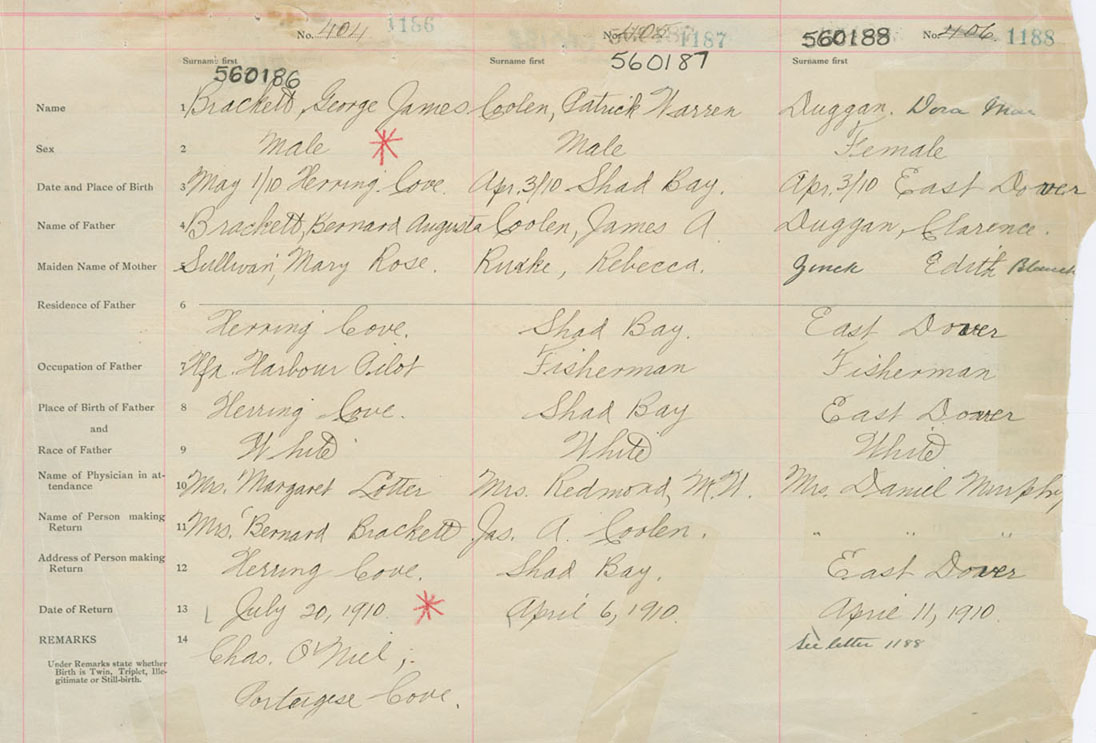 No. 404 1186 No. 405 1187 560188 No. 406 1188
Surname first Surname first Surname first
560186 560187
Name 1 Brackett, George James Coolen, Patrick Warren Duggan, Dora Mae
Sex 2 Male Male Female
Date and Place of Birth 3 May 1/10 Herring Cove. Apr. 3/10 Shad Bay. Apr. 3/10 East Dover
Name of Father 4 Brackett, Bernard Augusta Coolen, James A. Duggan, Clarence.
Maiden Name of Mother 5 Sullivan, Mary Rose. Rebecca. Zinck Edith
Residence of Father 6
Herring Cove. Shad Bay. East Dover
Occupation of Father 7 Hfx. Harbour Pilot Fisherman Fisherman
Place of Birth of Father 8 Herring Cove. Shad Bay East Dover
and
Race of Father 9 White White White
Name of Physician in at-
tendance 10 Mrs. Margaret Mrs. Redmond, M.W. Mrs. Daniel Murphy
Name of Person making
Return 11 Mrs. Bernard Brackett Jas. A. Coolen. " " "
Address of Person making
Return 12 Herring Cove. Shad Bay. East Dover
Date of Return 13 July 20, 1910 April 6, 1910. April 11, 1910.
REMARKS 14 Chas. O'Niel; See letter 1188
Under Remarks state whether
Birth is Twin, Triplet, Ille-
gitimate or Still-birth.
Portugese Cove.